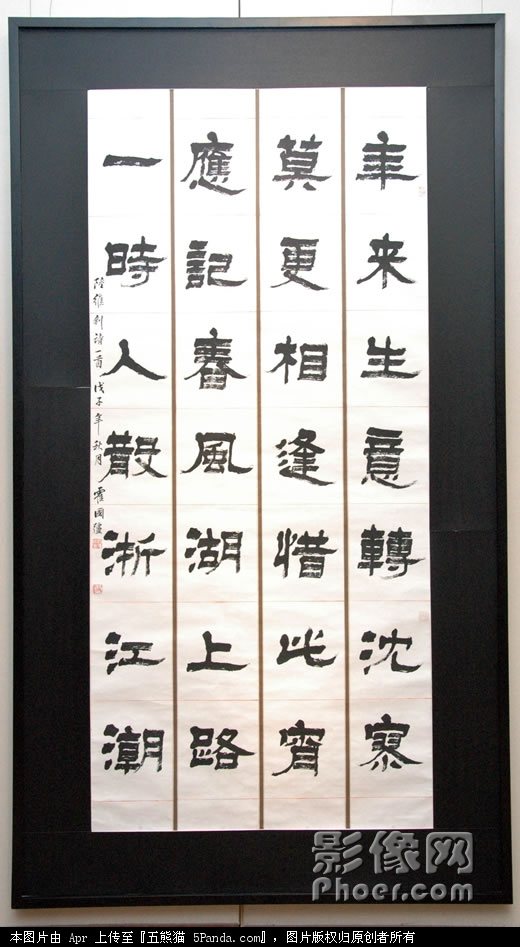 年来生意轉沈寥
莫更相逢惜此宵
應記春風湖上路
一時人散浙江潮
陸維釗詩一首 戊子年秋月 霍國強
影像网
Phoer.com
本图片由 Apr 上传至『五熊猫 5Panda.com』，图片版权归原创者所有